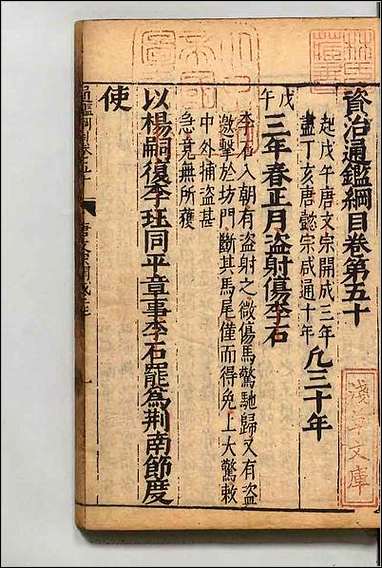 資治通鑑綱目卷第五十
起戊午唐文宗開成三年
盡丁亥唐懿宗咸通八年
凡三十年
戊午
三年春正月盜射傷李石
李石入朝有盜射之微傷馬驚馳歸又有盜
邀擊於坊門斷其馬尾僅而得免上大驚敕
中外捕盜甚
急竟無所獲
以楊嗣復李珏同平章事李石罷為荊南節度
使
淺草文庫